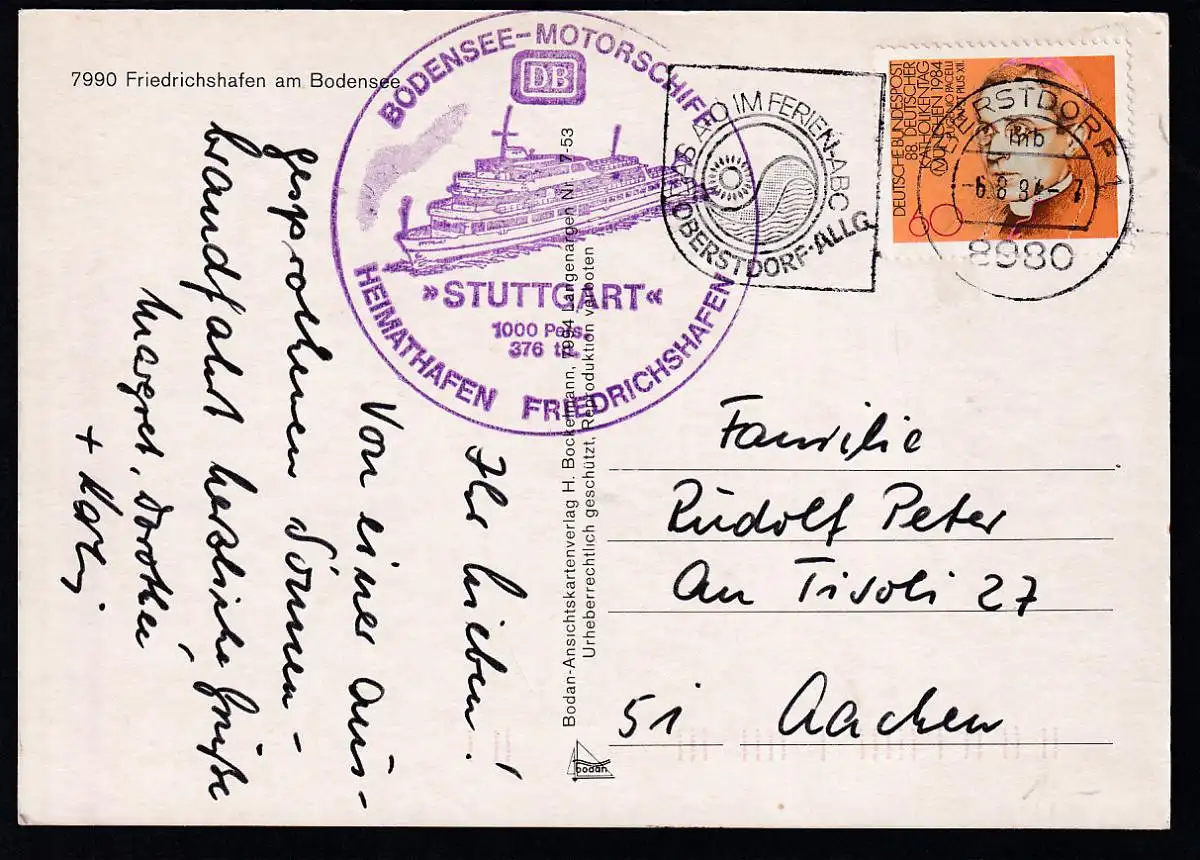 7990 Friedrichshafen am Bodensee
BODENSEE-MOTORSCHIFF
DB
»STUTTGART«
1000 Pers.
376 to.
HEIMATHAFEN FRIEDRICHSHAFEN
DAS A-O IM FERIEN-ABC
OBERSTDORF-ALLG.
DEUTSCHE BUNDESPOST
88. DEUTSCHER
KATHOLIKENTAG
MÜNCHEN 1984
EUGENIO PACELLI
PAPST PIUS XII.
60
OBERSTDORF 1
mb
-6.8.84-7
8980
Ihr Lieben!
Von einer aus-
gesprochenen Sonnen-
brandfahrt herzliche Grüße
Margret, Dorothee
+
Bodan-Ansichtskartenverlag H. Bockelmann, 7994 Langenargen Nr. 7-53
Urheberrechtlich geschützt, Reproduktion verboten
bodan
Familie
Rudolf Peter
An Tivoli 27
51 Aachen